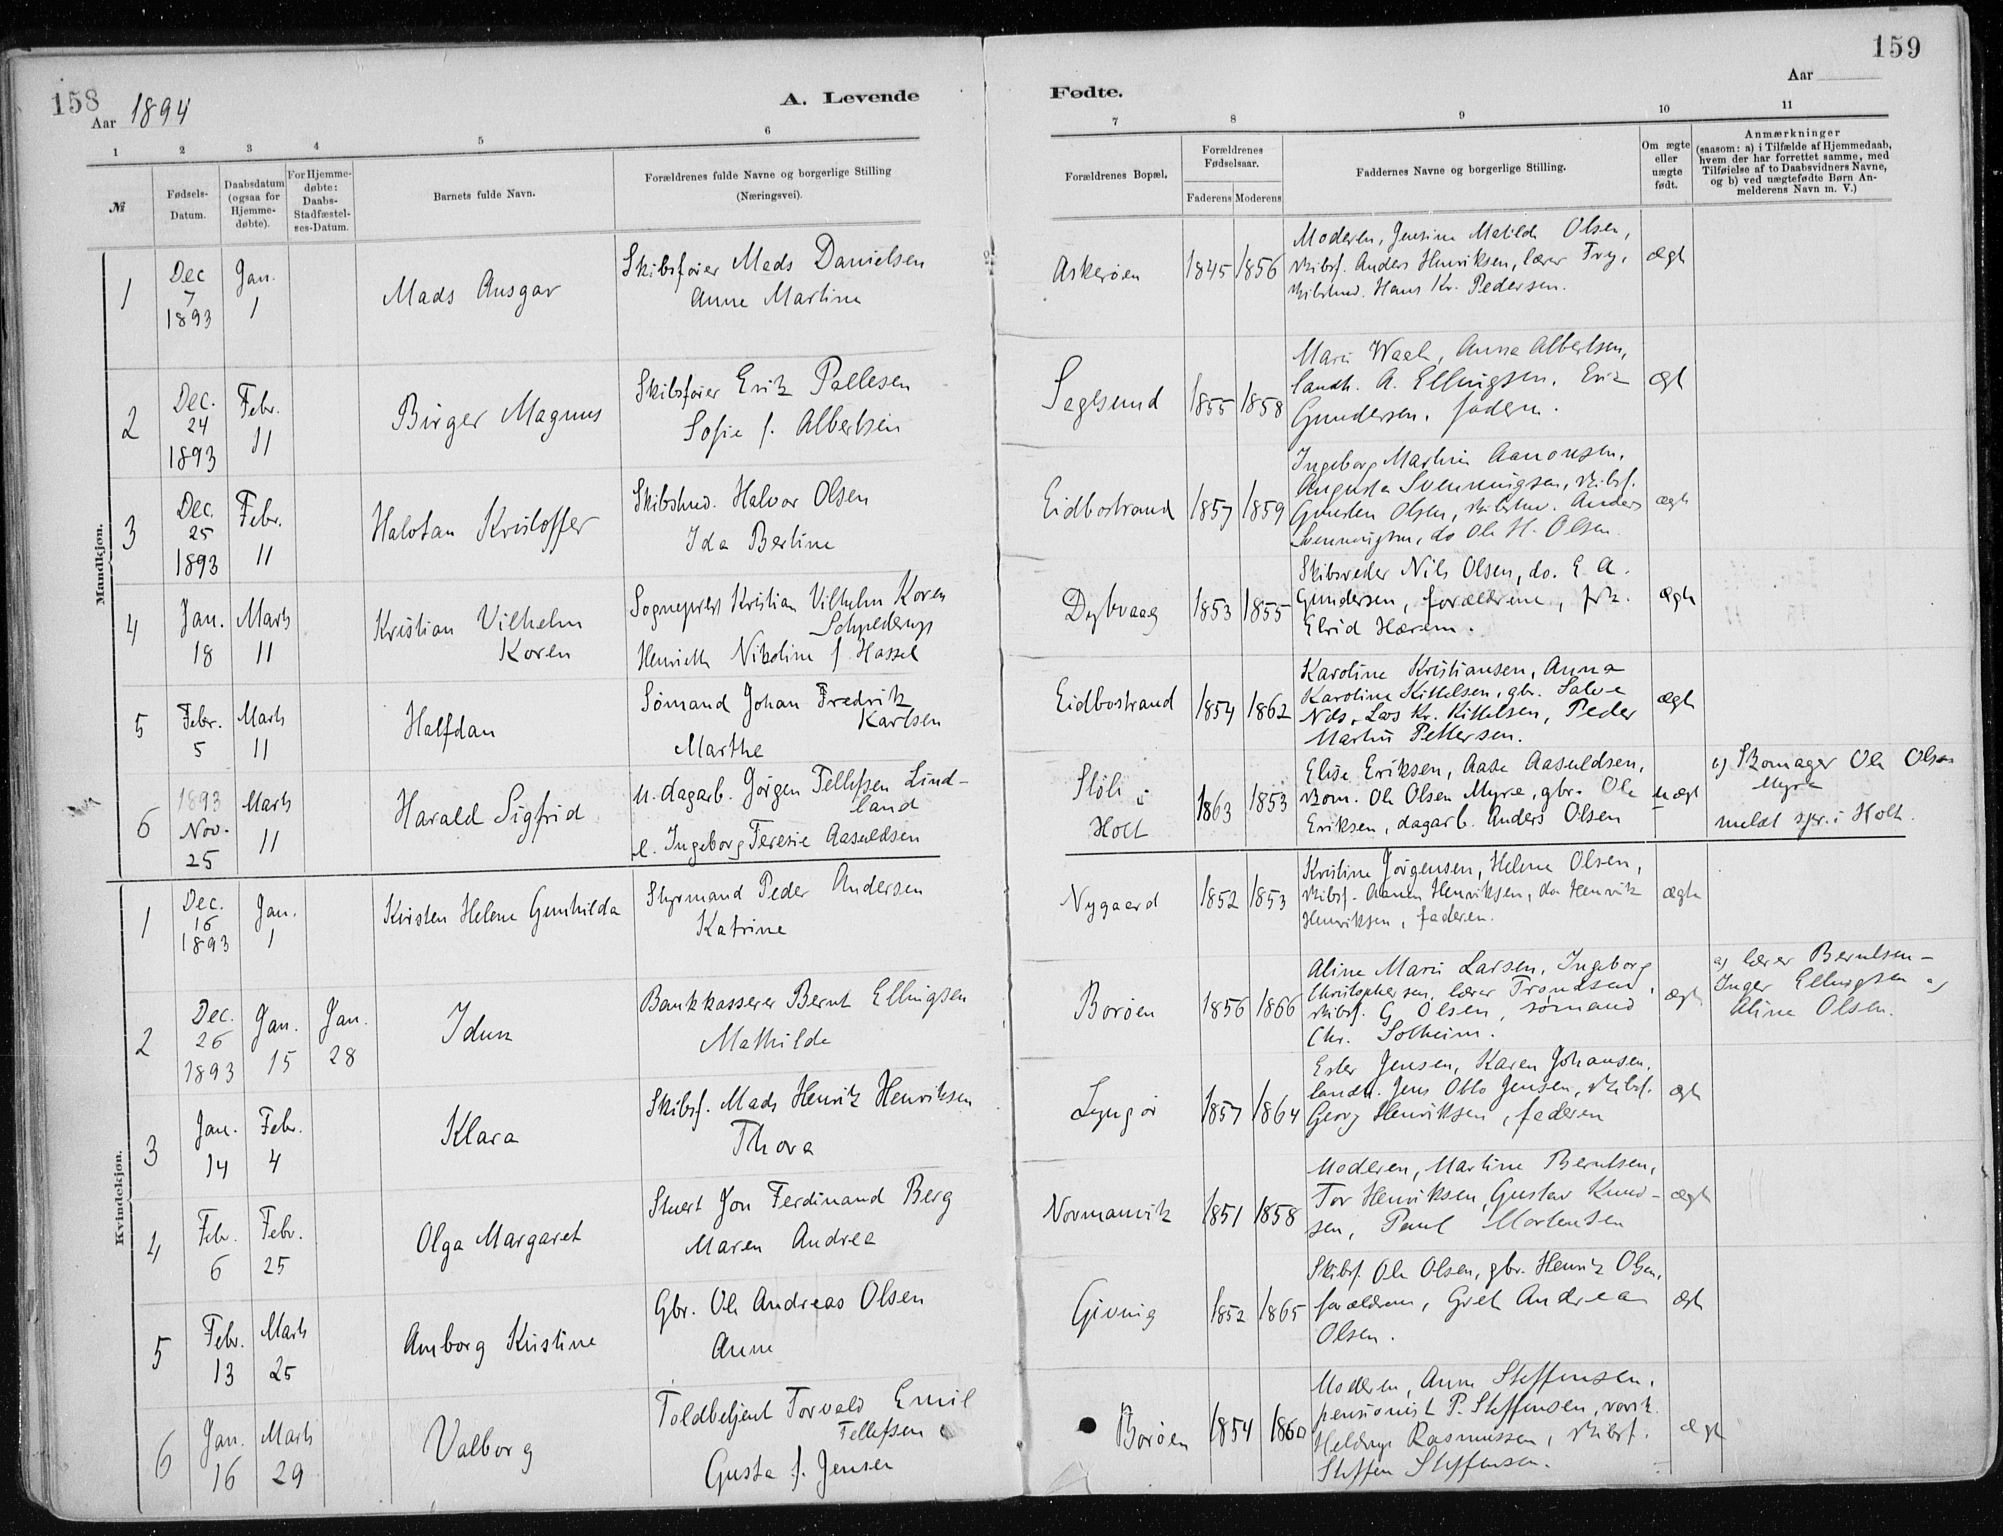 158
Aar 1894
A. Levende
1 2 3 4 5 6
№
Fødsels-Datum.
Daabsdatum (ogsaa for Hjemme-døbte).
For Hjemme-døbte: Daabs-Stadfæstel-ses-Datum.
Barnets fulde Navn.
Forældrenes fulde Navne og borgerlige Stilling
(Næringsvei).
Mandkjøn.
1 Dec 7 1893 Jan. 1 Mads Ansgar
Skibsfører Mads Danielsen
Anne Martine
2 Dec. 24 1893 Febr. 11 Birger Magnus
Skibsfører Erik Pallesen
Sofie f. Albertsen
3 Dec. 25 1893 Febr. 11 Halvtan Kristoffer
Skibstmd. Halvor Olsen
Ida Bertine
4 Jan. 18 Marts 11 Kristian Vilhelm
Koren
Sogneprest Kristian Vilhelm Koren
Schjelderup
Henriette Nikoline f. Hassel
5 Febr. 5 Marts 11 Halfdan
Sømand Johan Fredrik
Karlsen
Marthe
6 1893 Nov. 25 Marts 11 Harald Sigfrid
u. dagarb. Jørgen Tellefsen Lind-
land
e. Ingeborg Teresie Aasuldsen
Kvindekjøn.
1 Dec. 16 1893 Jan. 1 Kirsten Helene Gunhilda
Styrmand Peder Andersen
Katrine
2 Dec. 26 1893 Jan. 15 Jan. 28 Idun
Bankkasserer Bernt Ellingsen
Mathilde
3 Jan. 14 Febr. 4 Klara
Skibsf. Mads Henrik Henriksen
Thora
4 Febr. 6 Febr. 25 Olga Margaret
Stuert Jon Ferdinand Berg
Maren Andrea
5 Febr. 13 Marts 25 Amborg Kristine
Gbr. Ole Andreas Olsen
Anne
6 Jan. 16 Marts 29 Valborg
Toldbetjent Torvald Emil
Tellefsen
Gusta f. Jensen
159
Aar
Fødte.
7 8 9 10 11
Forældrenes Bopæl,
Forældrenes Fødselsaar.
Faderens Moderens
Faddernes Navne og borgerlige Stilling.
Om ægte eller uægte født.
Anmærkninger
(saasom: a) i Tilfælde af Hjemmedaab,
hvem der har forrettet samme, med
Tilføielse af to Daabsvidners Navne,
og b) ved uægtefødte Børn An-
melderens Navn m. V.)
Askerøen 1845 1856
Moderen, Jensine Matilde Olsen,
skibsf. Anders Henriksen, lærer Fry,
skibstmd. Hans Kr. Pedersen.
ægte
Sagesund 1855 1858
Marie Waal, Anna Albertsen,
landh. A. Ellingsen, Erik
Gundersen, faderen.
ægt
Eidbostrand 1857 1859
Ingeborg Martine Aanonsen,
Augusta Svenningsen, skibsf.
Gunsten Olsen, skibstmd. Anders
Svenningsen, do Ole H. Olsen.
ægte
Dybvaag 1853 1855
Skibsreder Nils Olsen, do. E. A.
Gundersen, forældrene, frk.
Elrid Hærem.
ægte
Eidbostrand 1854 1862
Karoline Kristiansen, Anna
Karoline Kittelsen, gbr. Salve
Nils. Lars Kr. Kittelsen, Peder
Martin Pettersen.
ægte
Støle i
Holt 1863 1853
Elise Eriksen, Aase Aasuldsen,
skom. Ole Olsen Myre, gbr. Ole
Eriksen, dagarb. Anders Olsen
uægt
b) Skomager Ole Olsen
Myre
melat spr. i Holt.
Nygaard 1852 1853
Kristine Jørgensen, Helene Olsen,
skibsf. Aanen Henriksen, do Henrik
Henriksen, faderen.
ægte
Borøen 1856 1866
Aline Marie Larsen, Ingeborg
Christophersen, lærer Trondsen,
skibsf. G. Olsen, sømand
Chr. Solheim.
ægte
a) lærer Berntsen –
Inger Ellingsen og
Aline Olsen.
Lyngør 1857 1864
Ester Jensen, Karen Johansen,
landh. Jens Otto Jensen, skibsf.
Georg Henriksen, faderen
ægt
Normanvik 1851 1858
Moderen, Martine Berntsen,
Tor Henriksen, Gustav Knud-
sen, Paul Mortensen
ægte
Givnig 1852 1865
Skibsf. Ole Olsen, gbr. Henrik Olsen,
forældrene, Grete Andrea
Olsen.
ægte
Borøen 1854 1860
Moderen, Anne Steffensen,
pensionist P. Steffensen,
Rasmussen, skibsf.
Steffen Steffensen.
ægte